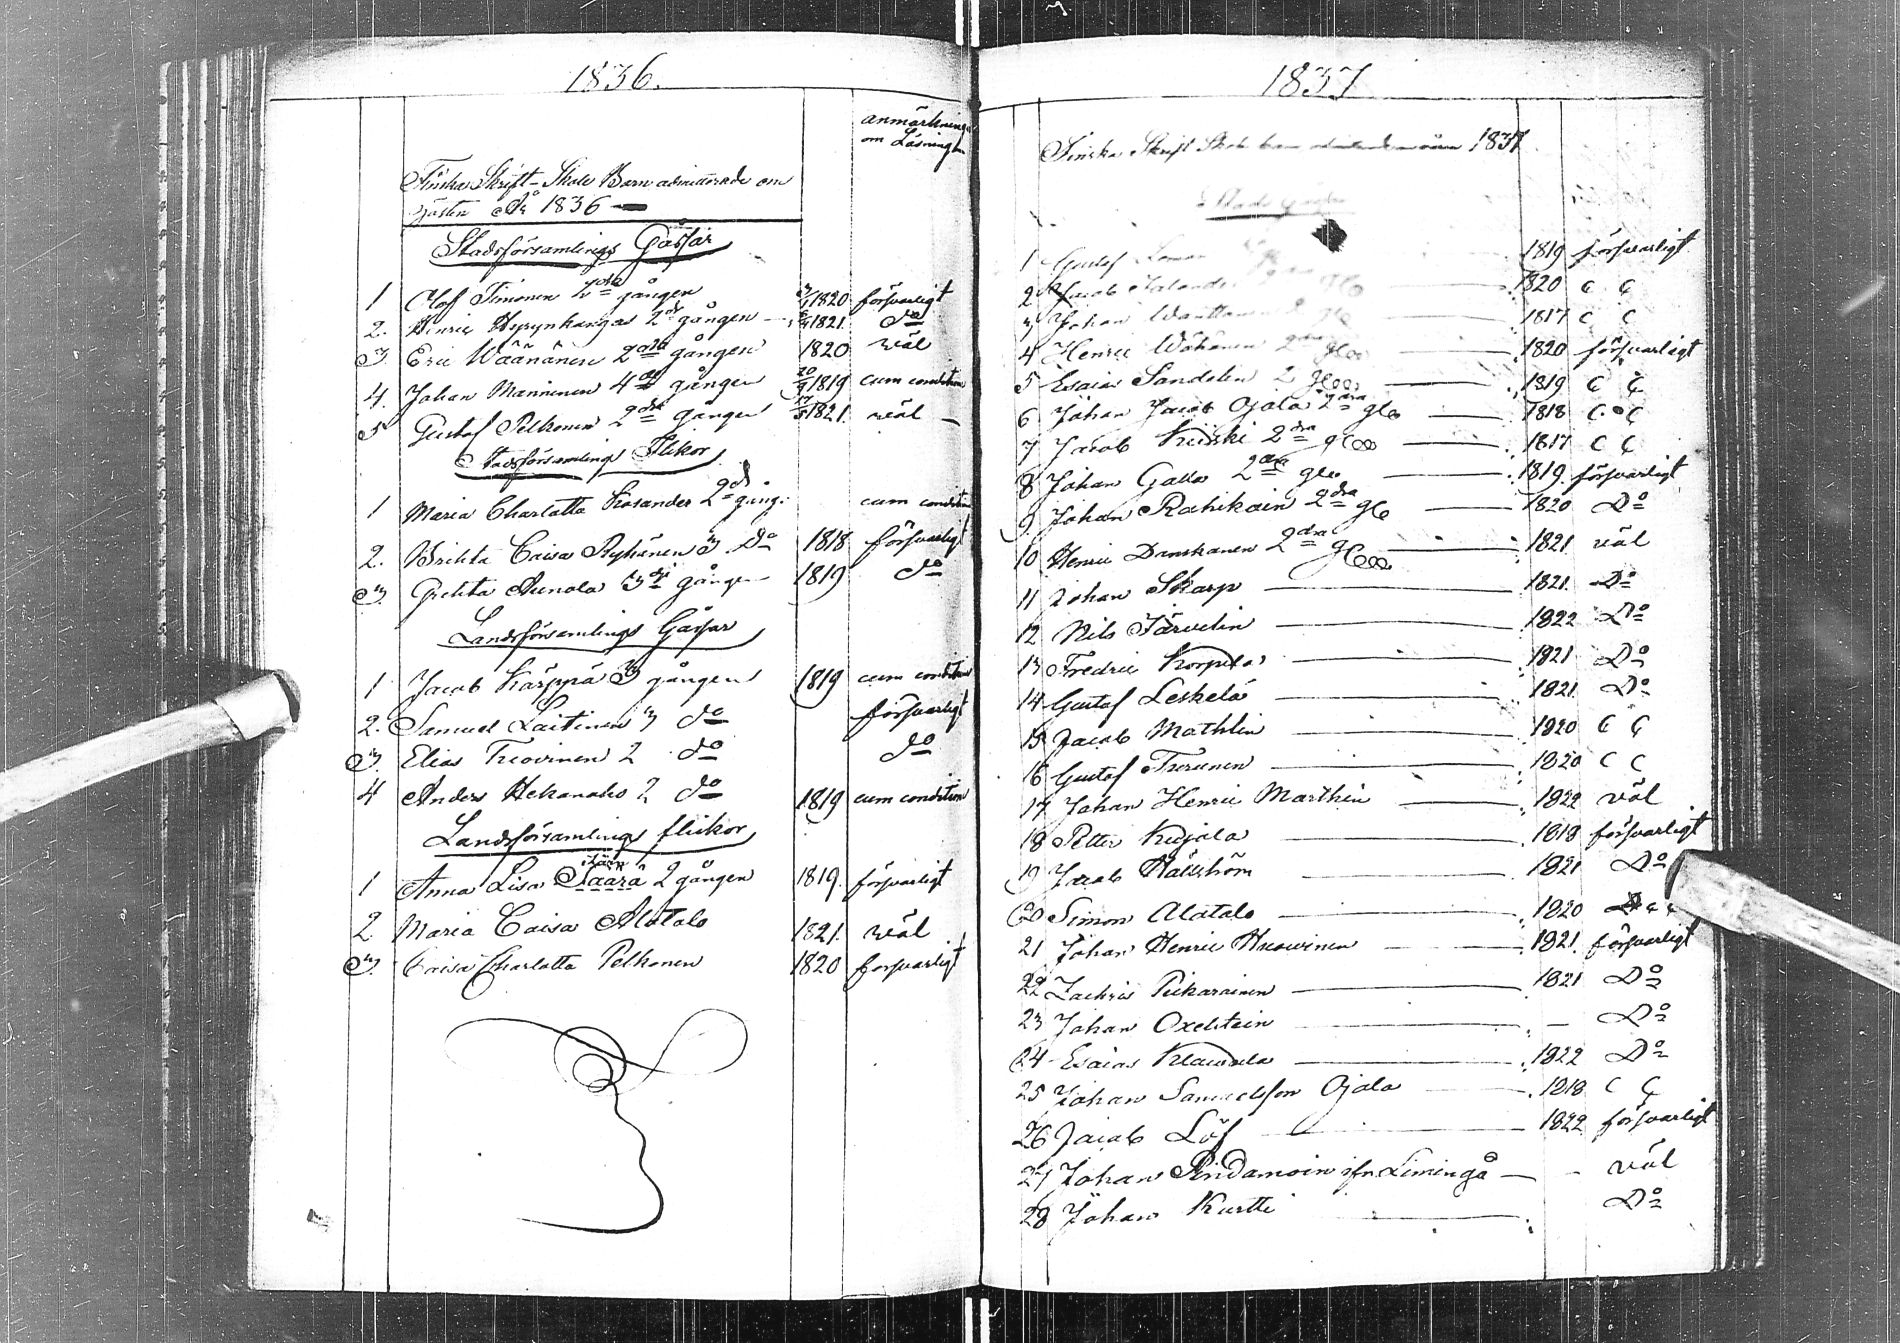 1836.
anmärkning
om Läsningen
Finska Skrift-Skole Barn admitterade om
Hösten År 1836
Stadsförsamlings Gåssar
1 Olof Timonen 2dra gången 1820 försvarligt
2. Henric Hyrynkangas 2dra gången 1821. do
3. Eric Wäänänen 2dra gången 1820 väl
4. Johan Manninen 4de gången 20/9 1819 cum condition
5 Gustaf Pelkonen 2dra gången 1821. väl
Stadsförsamlings Flickor
1 Maria Charlotta Kosander 2dra gång: cum condition
2. Brichta Caisa Ryhänen 3 do 1818 försvarligt
3. Grehta Aunola 3dje gången 1819 do
Landsförsamlings Gåssar
1 Jacob Kärppä 3 gången 1819 cum condition
2. Samuel Laitinen 3 do försvarligt
3. Elias 2 do do
4 Anders Hekanaho 2 do 1819 cum condition
Landsförsamlings flickor
1 Anna Lisa 2 gången 1819. försvarligt
2. Maria Caisa Alatalo 1821. väl
3. Caisa Charlotta Pelkonen 1820 försvarligt
1837
Finska Skrift Skole barn 1837
1 Gustaf 1819 försvarligt
2 Jacob 1820 C C
3 Johan 1817 C C
4 Henric Wähänen 2dra glo 1820 försvarligt
5 Esaias Sandelin 2 1819 C C
6 Johan Jacob Ojala 2dra glo 1818 C C
7 Jacob Kiiski 2dra 1817 C C
8 Johan Galla 2dra glo 1819. försvarligt
9 Johan Rahikain 2dra glo 1820 Do
10 Henric Danskanen 2dra 1821. väl
11 Johan Skarp 1821. Do
12 Nils Järvelin 1822 Do
13 Fredric Korpela 1821 Do
14 Gustaf Leskelä 1821. Do
15 Jacob Mathlin 1820 C C
16 Gustaf Turunen 1820 C C
17 Johan Henric Marthin 1822 väl
18 Petter Kujala 1818 försvarligt
19 Jacob Hällström 1821 Do
20 Simon Alatalo 1820 C C
21 Johan Henric Huovinen 1821. försvarligt
22 Zachris Pickarainen 1821 Do
23 Johan Oxelstein — Do
24 Esaias 1822 Do
25 Johan Samuelsson Ojala 1818 C C
26 Jacob Löf 1822 försvarligt
27 Johan ifn Limingå — väl
28 Johan Kurtti Do